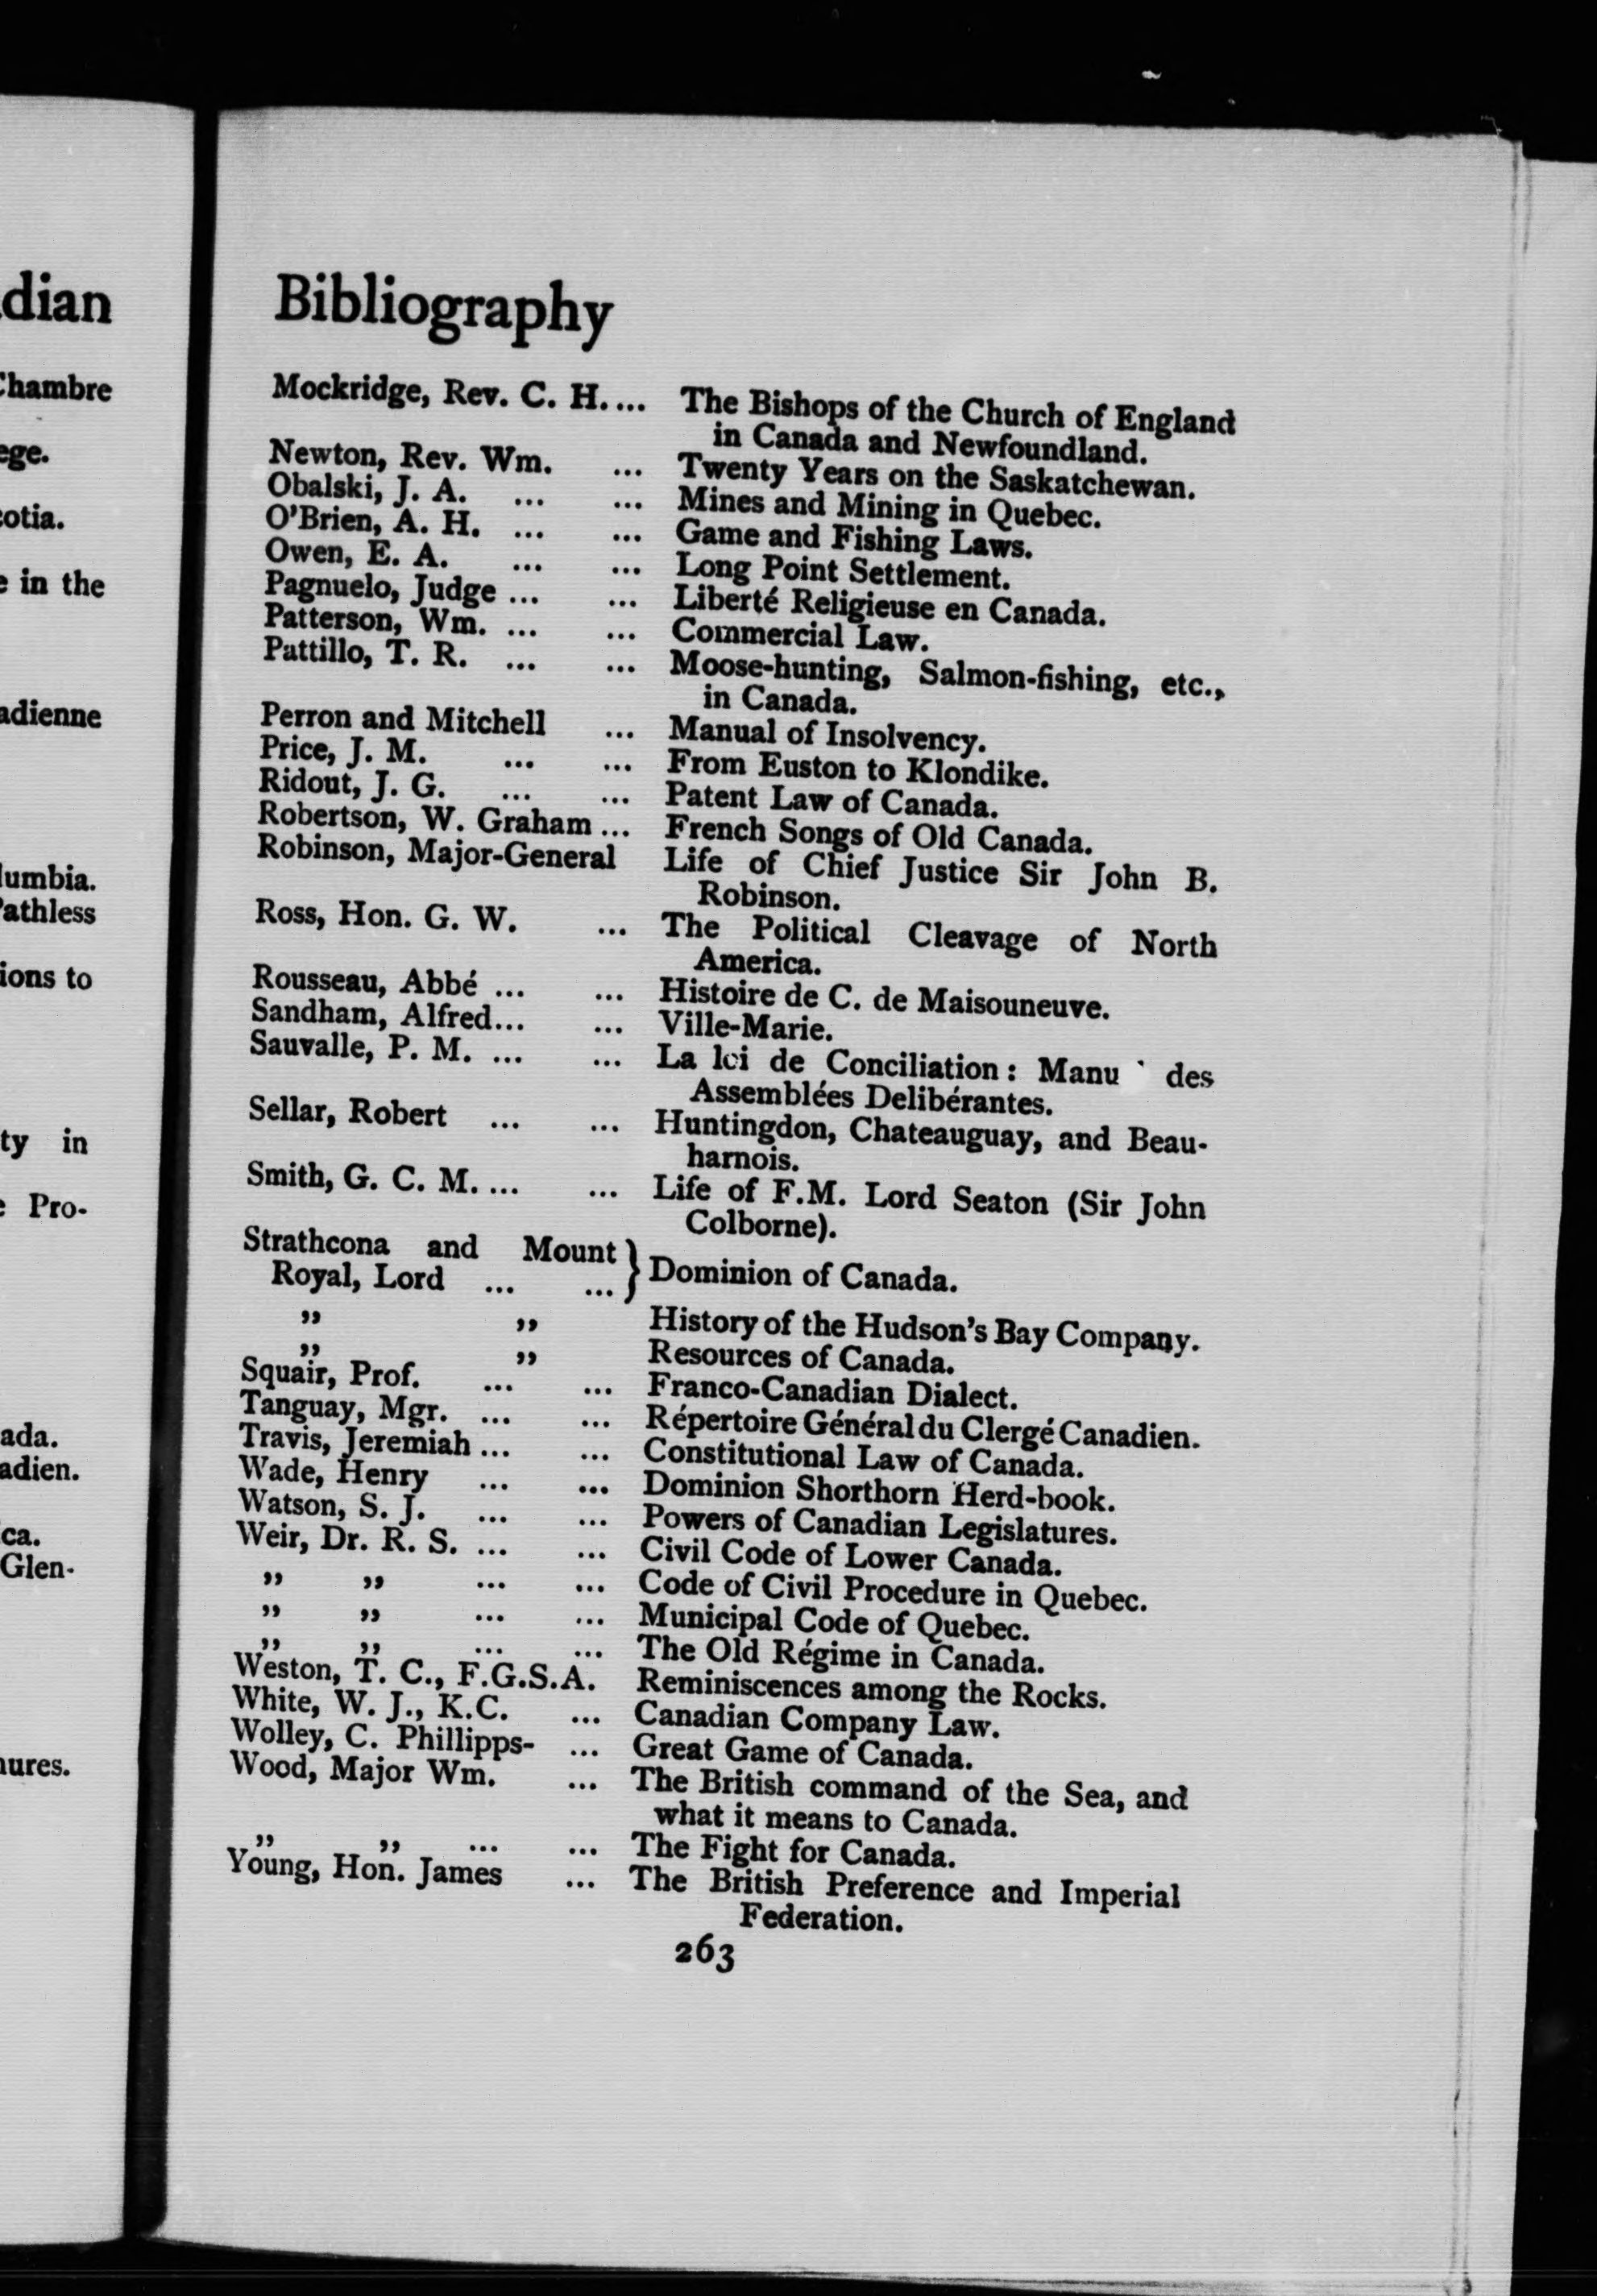 dian
Chambre
ege.
cotia.
e in the
adienne
lumbia.
Pathless
ions to
ty in
e Pro-
ada.
adien.
ca.
Glen-
ures.
Bibliography
Mockridge, Rev. C. H. ... The Bishops of the Church of England
in Canada and Newfoundland.
Newton, Rev. Wm. ... Twenty Years on the Saskatchewan.
Obalski, J. A. ... ... Mines and Mining in Quebec.
O'Brien, A. H. ... ... Game and Fishing Laws.
Owen, E. A. ... ... Long Point Settlement.
Pagnuelo, Judge ... ... Liberté Religieuse en Canada.
Patterson, Wm. ... ... Commercial Law.
Pattillo, T. R. ... ... Moose-hunting, Salmon-fishing, etc.,
in Canada.
Perron and Mitchell ... Manual of Insolvency.
Price, J. M. ... ... From Euston to Klondike.
Ridout, J. G. ... ... Patent Law of Canada.
Robertson, W. Graham ... French Songs of Old Canada.
Robinson, Major-General Life of Chief Justice Sir John B.
Robinson.
Ross, Hon. G. W. ... The Political Cleavage of North
America.
Rousseau, Abbé ... ... Histoire de C. de Maisouneuve.
Sandham, Alfred... ... Ville-Marie.
Sauvalle, P. M. ... ... La loi de Conciliation: Manu des
Assemblées Delibérantes.
Sellar, Robert ... ... Huntingdon, Chateauguay, and Beau-
harnois.
Smith, G. C. M. ... ... Life of F.M. Lord Seaton (Sir John
Colborne).
Strathcona and Mount
Royal, Lord ... ... } Dominion of Canada.
„ „ History of the Hudson's Bay Company.
„ „ Resources of Canada.
Squair, Prof. ... ... Franco-Canadian Dialect.
Tanguay, Mgr. ... ... Répertoire Général du Clergé Canadien.
Travis, Jeremiah ... ... Constitutional Law of Canada.
Wade, Henry ... ... Dominion Shorthorn Herd-book.
Watson, S. J. ... ... Powers of Canadian Legislatures.
Weir, Dr. R. S. ... ... Civil Code of Lower Canada.
„ „ ... ... Code of Civil Procedure in Quebec.
„ „ ... ... Municipal Code of Quebec.
„ „ ... ... The Old Régime in Canada.
Weston, T. C., F.G.S.A. Reminiscences among the Rocks.
White, W. J., K.C. ... Canadian Company Law.
Wolley, C. Phillipps- ... Great Game of Canada.
Wood, Major Wm. ... The British command of the Sea, and
what it means to Canada.
„ „ ... ... The Fight for Canada.
Young, Hon. James ... The British Preference and Imperial
Federation.
263